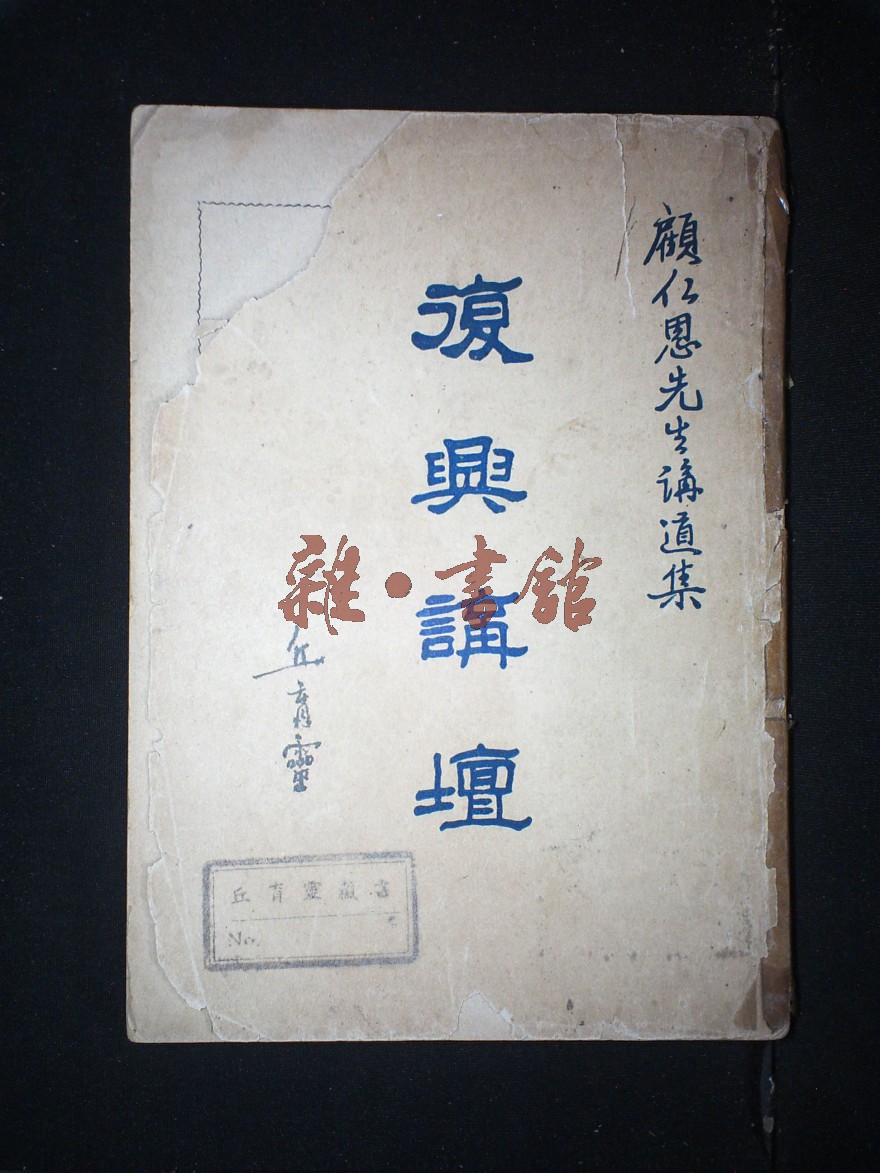 顧仁恩先生講道集
復興講壇
雜·書館
丘育靈
丘育靈藏書
No.